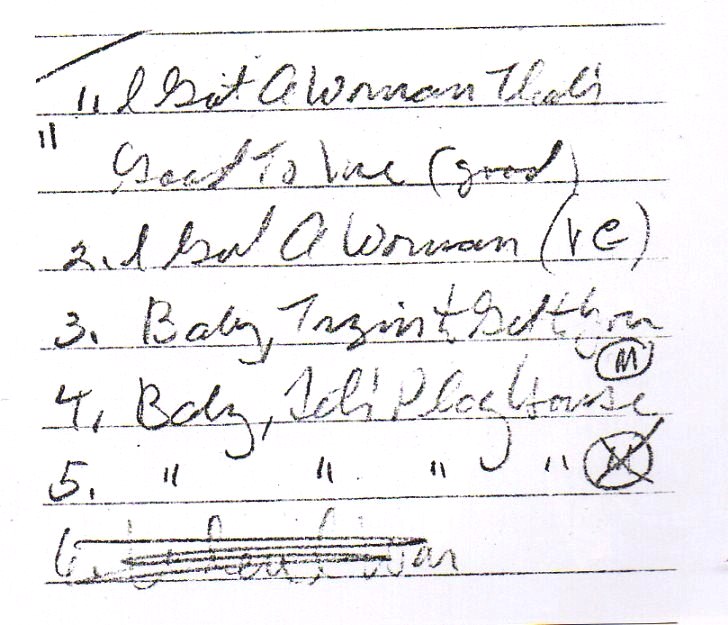 1. I Got A Woman That's
"
Good To Me (good)
2. I Got A Woman (VG)
3. Baby, Tryin't Get to you
M
4. Baby, Let's Play House
5. " " " " M
6.